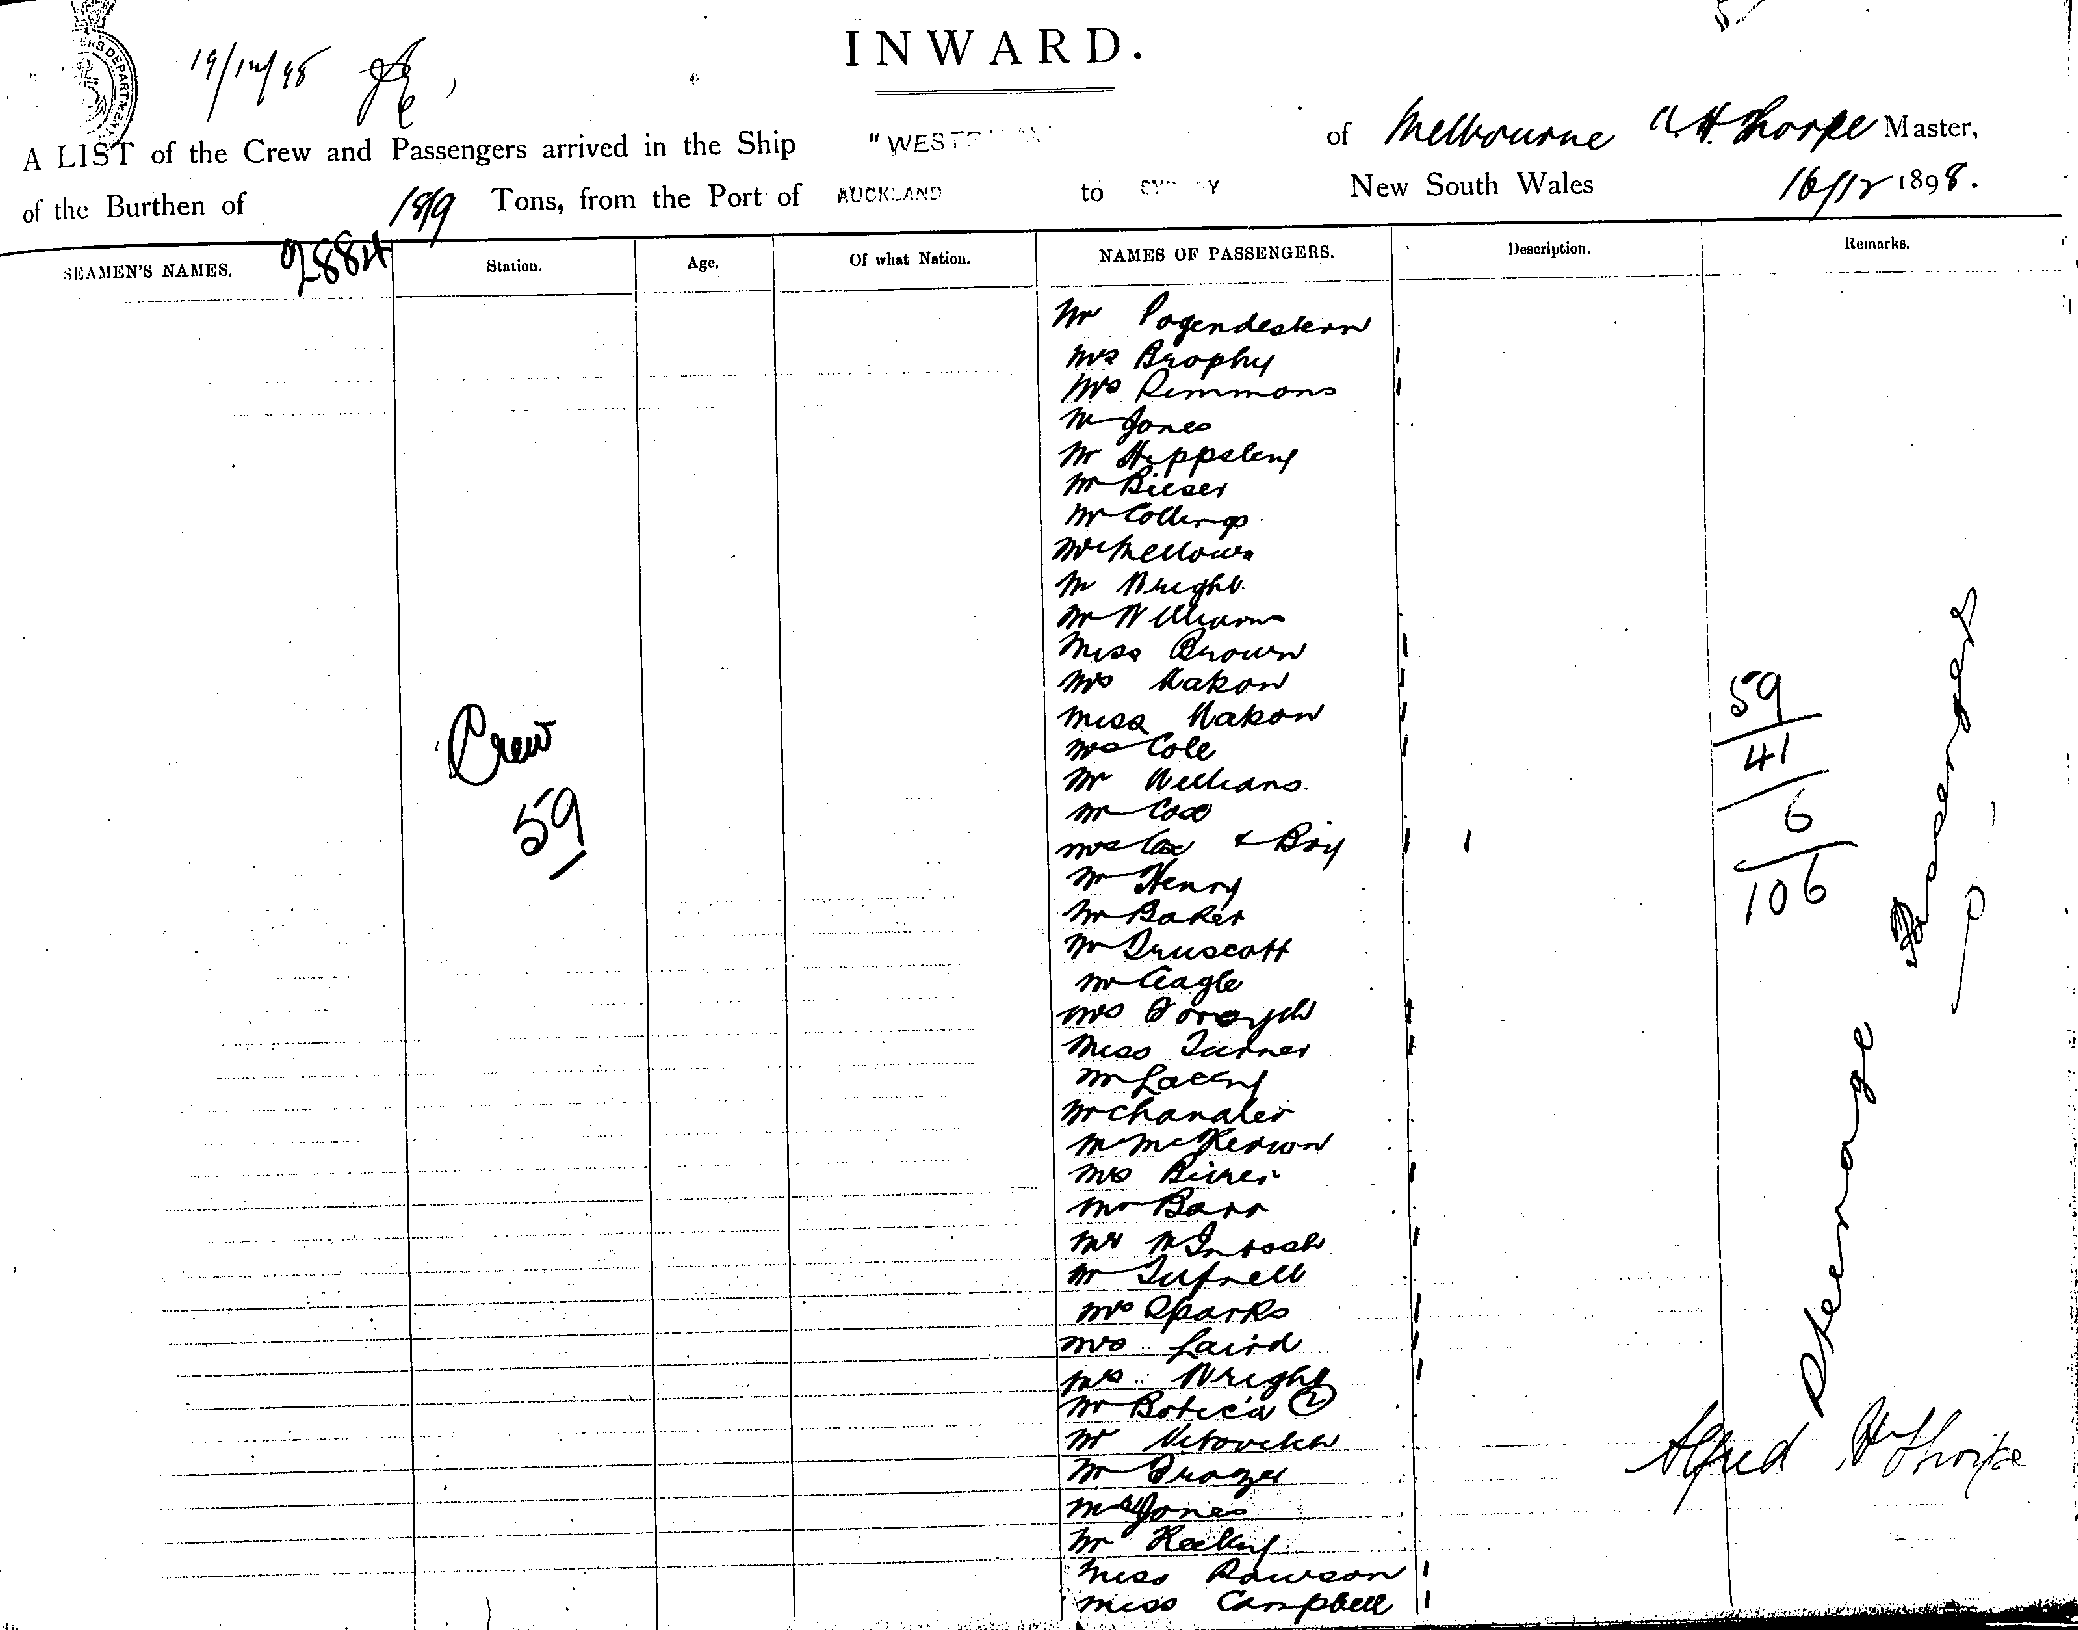 19/12/98
INWARD.
A LIST of the Crew and Passengers arrived in the Ship "WEST of Melbourne A H. Thorpe Master,
of the Burthen of 1819 Tons, from the Port of AUCKLAND to SYDNEY New South Wales 16/12 1898.
SEAMEN'S NAMES. Station. Age. Of what Nation. NAMES OF PASSENGERS. Description. Remarks.
2884
Mr
Mrs Brophy
Mrs Simmons
Mr Jones
Mr Hippsley
Mr Bieser
Mr Collings
Mr Mellows
Mr Wright
Mr Williams
Miss Brown
Mrs Nakon
Miss Nakon
Mrs Cole
Mr Williams
Mr Cox
Mrs Cox & Boy
Mr Henry
Mr Baker
Mr Truscott
Mr Eagle
Mrs Forsyth
Miss Turner
Mr Lacey
Mr Chandler
Mr McKerson
Mrs
Mr Barr
Mrs McIntosh
Mr Tufnell
Mrs Sparks
Mrs Laird
Mrs Wright
Mr Botica 2
Mr
Mr
Mrs Jones
Mr
Miss Rawson
Miss Campbell
Crew
59
59
41
6
106
Steerage Passengers
Alfred H Thorpe